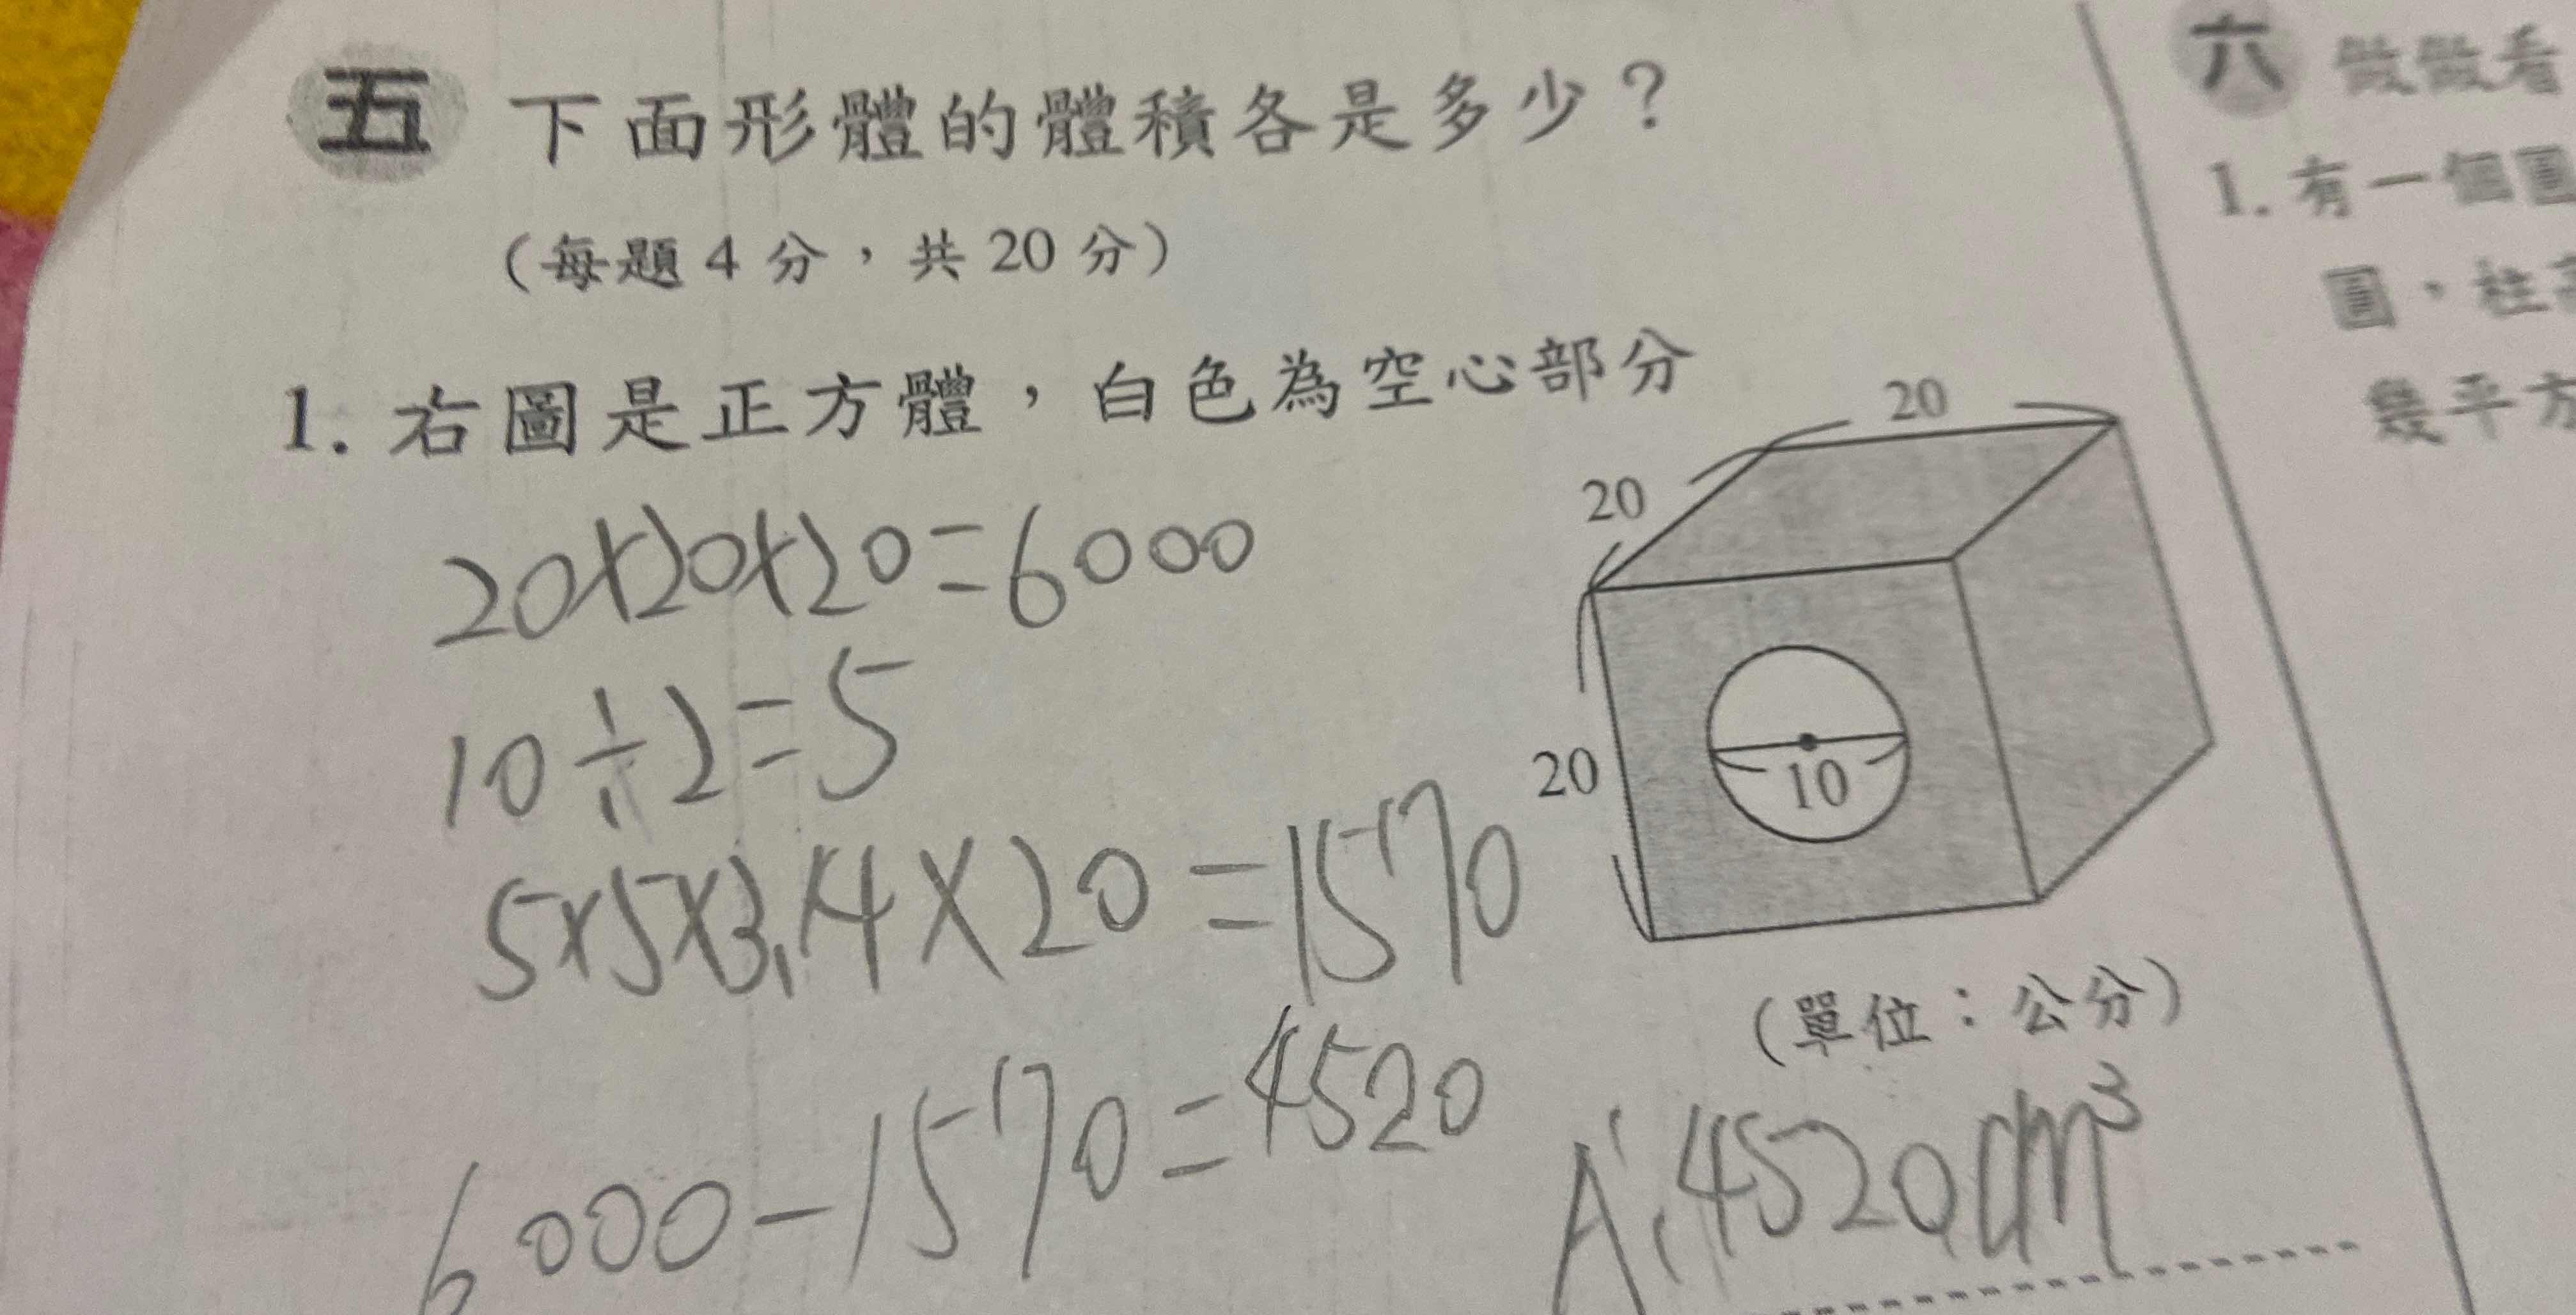 五 下面形體的體積各是多少？
（每題 4 分，共 20 分）
1. 右圖是正方體，白色為空心部分
20
20
20
10
（單位：公分）
20×20×20=6000
10÷2=5
5×5×3.14×20=1570
6000-1570=4520
A:4520cm³
六 做做看
1. 有一個圓
圓，柱高
幾平方